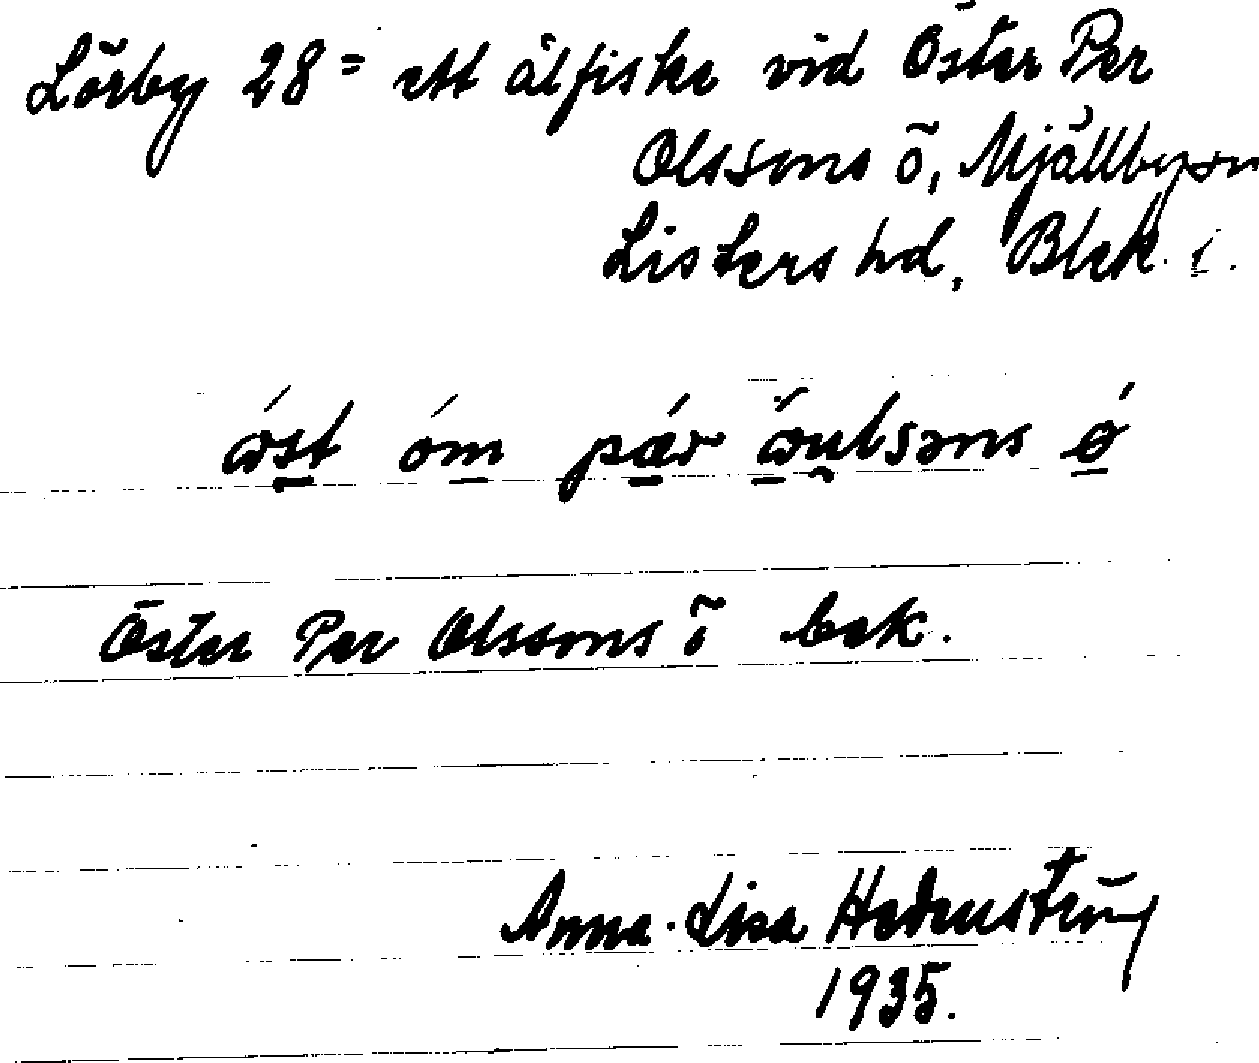 Lörby 28 = ett ålfiske vid Öster Per
Olssons ö, Mjällby sn
Listers hd, Blek. l.
öst óm pær åulsəns ǿ
Öster Per Olssons ö bek.
Anna-Lisa
1935.